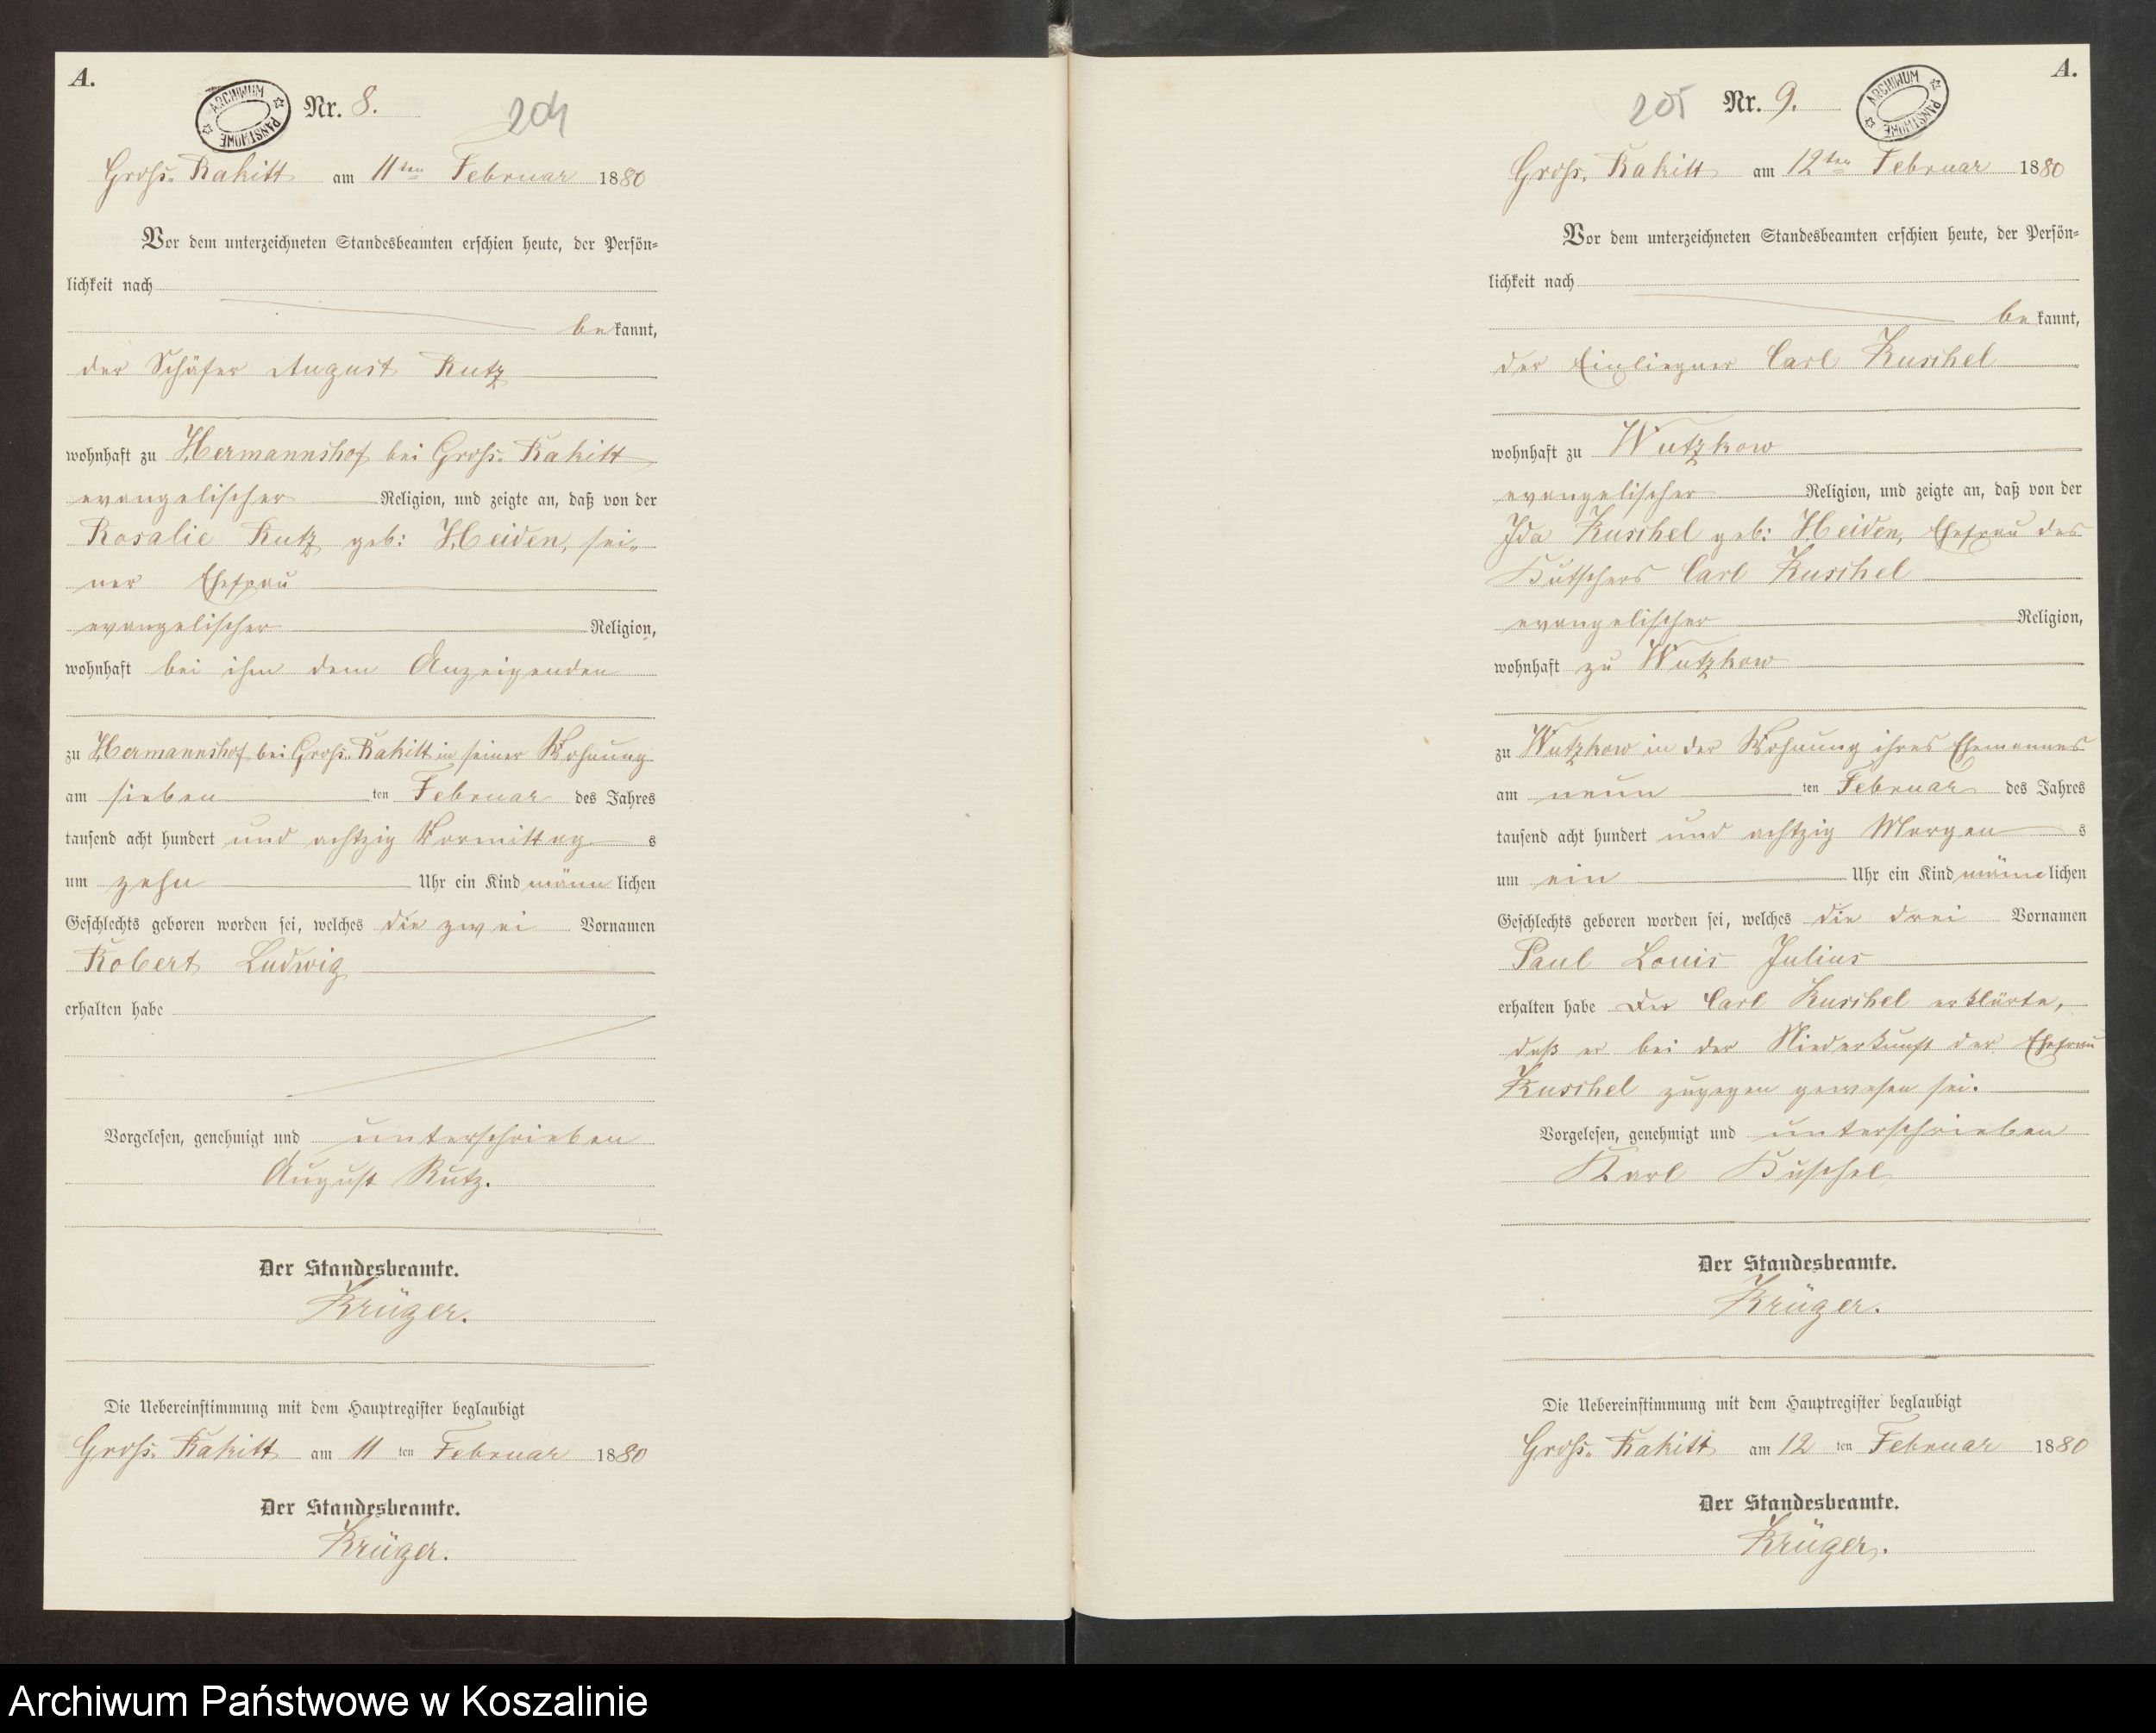 A.
ARCHIWUM PAŃSTWOWE
Nr. 8.
204
Groß-Rakitt am 11ten Februar 1880
Vor dem unterzeichneten Standesbeamten erschien heute, der Persön-
lichkeit nach
bekannt,
der Schäfer August Rutz
wohnhaft zu Hermannshof bei Groß-Rakitt
evangelischer Religion, und zeigte an, daß von der
Rosalie Rutz geb: Heiden, sei-
ner Ehefrau
evangelischer Religion,
wohnhaft bei ihm dem Anzeigenden
zu Hermannshof bei Groß-Rakitt in seiner Wohnung
am sieben ten Februar des Jahres
tausend acht hundert und achtzig Vormittag s
um zehn Uhr ein Kind männlichen
Geschlechts geboren worden sei, welches die zwei Vornamen
Robert Ludwig
erhalten habe
Vorgelesen, genehmigt und unterschrieben
August Rutz.
Der Standesbeamte.
Krüger.
Die Uebereinstimmung mit dem Hauptregister beglaubigt
Groß-Rakitt am 11 ten Februar 1880
Der Standesbeamte.
Krüger.
A.
205
Nr. 9.
ARCHIWUM PAŃSTWOWE
Groß-Rakitt am 12ten Februar 1880
Vor dem unterzeichneten Standesbeamten erschien heute, der Persön-
lichkeit nach
bekannt,
der Einliegner Carl Kuschel
wohnhaft zu Wutzkow
evangelischer Religion, und zeigte an, daß von der
Ida Kuschel geb: Heiden, Ehefrau des
Kutschers Carl Kuschel
evangelischer Religion,
wohnhaft zu Wutzkow
zu Wutzkow in der Wohnung ihres Ehemannes
am neun ten Februar des Jahres
tausend acht hundert und achtzig Morgen s
um ein Uhr ein Kind männlichen
Geschlechts geboren worden sei, welches die drei Vornamen
Paul Louis Julius
erhalten habe Der Carl Kuschel erklärte,
daß er bei der Niederkunft der Ehefrau
Kuschel zugegen gewesen sei.
Vorgelesen, genehmigt und unterschrieben
Karl Kuschel
Der Standesbeamte.
Krüger.
Die Uebereinstimmung mit dem Hauptregister beglaubigt
Groß-Rakitt am 12 ten Februar 1880
Der Standesbeamte.
Krüger.
Archiwum Państwowe w Koszalinie